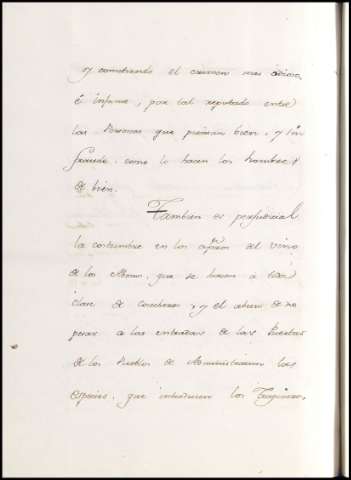 y cometiendo el crimen mas odioso,
é infame, por tal reputado entre
las Personas que piensan bien, y sin
fraude, como lo hacen los hombres
de bien.
Tambien es perjudicial
la costumbre en los aforos del vino
de los Mismos, que se hacen á toda
clase de cosecheros, y el abuso de no
pesar á las entradas de las Puertas
de los Pueblos de Administracion las
especies, que introducen los Tragineros,